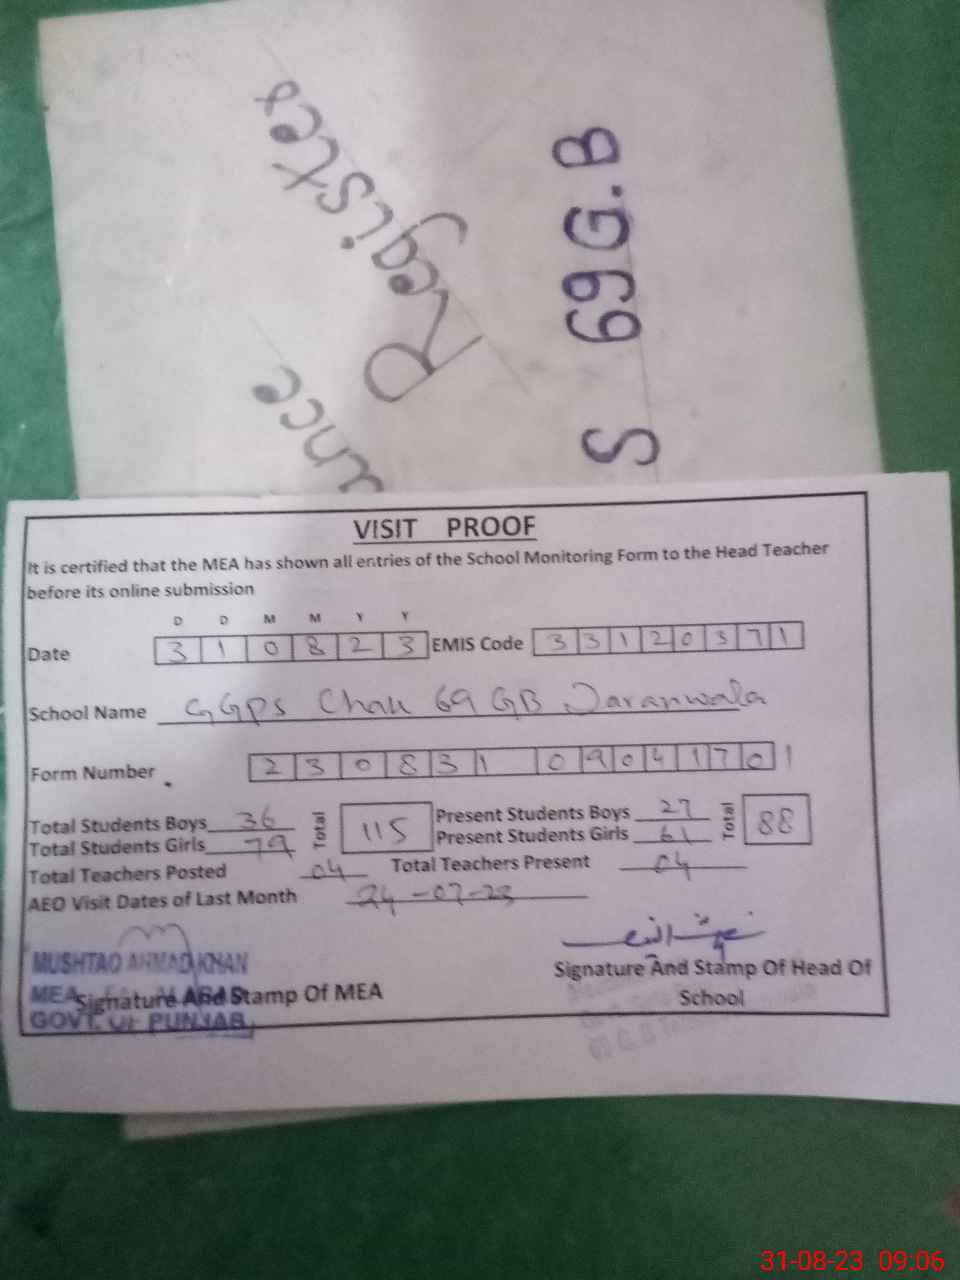 Register
S 69 G.B
VISIT PROOF
It is certified that the MEA has shown all entries of the School Monitoring Form to the Head Teacher
before its online submission
D D M M Y Y
Date 3 1 0 8 2 3 EMIS Code 3 3 1 2 0 3 7 1
School Name GGPS Chak 69 GB Jaranwala
Form Number 2 3 0 8 3 1 0 9 0 4 1 7 0 1
Total Students Boys 36 Total 115 Present Students Boys 27 Total 88
Total Students Girls 79 Present Students Girls 61
Total Teachers Posted 04 Total Teachers Present 04
AEO Visit Dates of Last Month 24-07-23
MUSHTAQ AHMAD KHAN
Signature And Stamp Of Head Of
School
MEA
Signature And Stamp Of MEA
GOVT. OF PUNJAB
31-08-23 09:06